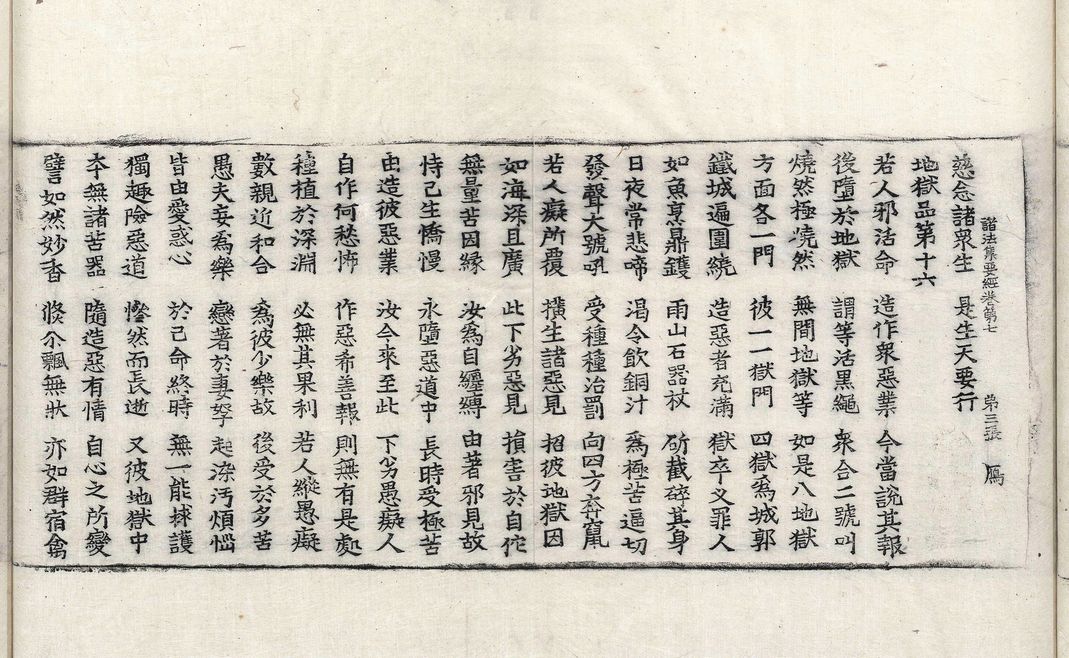 諸法集要經卷第七 第三張 鴈
慈念諸衆生 是生天要行
地獄品第十六
若人邪活命 造作衆惡業 今當說其報
後墮於地獄 謂等活黑繩 衆合二號叫
燒然極燒然 無間地獄等 如是八地獄
方面各一門 彼一一獄門 四獄爲城郭
鐵城遍圍繞 造惡者充滿 獄卒义罪人
如魚烹鼎鑊 雨山石器杖 斫截碎其身
日夜常悲啼 渴令飲銅汁 爲極苦逼切
發聲大號吼 受種種治罰 向四方奔竄
若人癡所覆 撗生諸惡見 招彼地獄因
如海深且廣 此下劣惡見 損害於自佗
無量苦因緣 汝爲自纏縛 由著邪見故
恃己生憍慢 永墮惡道中 長時受極苦
由造彼惡業 汝今來至此 下劣愚癡人
自作何愁怖 作惡希善報 則無有是處
種植於深淵 必無其果利 若人縱愚癡
數親近和合 爲彼少樂故 後受於多苦
愚夫妄爲樂 戀著於妻孥 起染污煩惱
皆由愛惑心 於己命終時 無一能捄護
獨趣險惡道 慞然而長逝 又彼地獄中
夲無諸苦器 隨造惡有情 自心之所變
譬如然妙香 倐尒飄無狀 亦如群宿禽